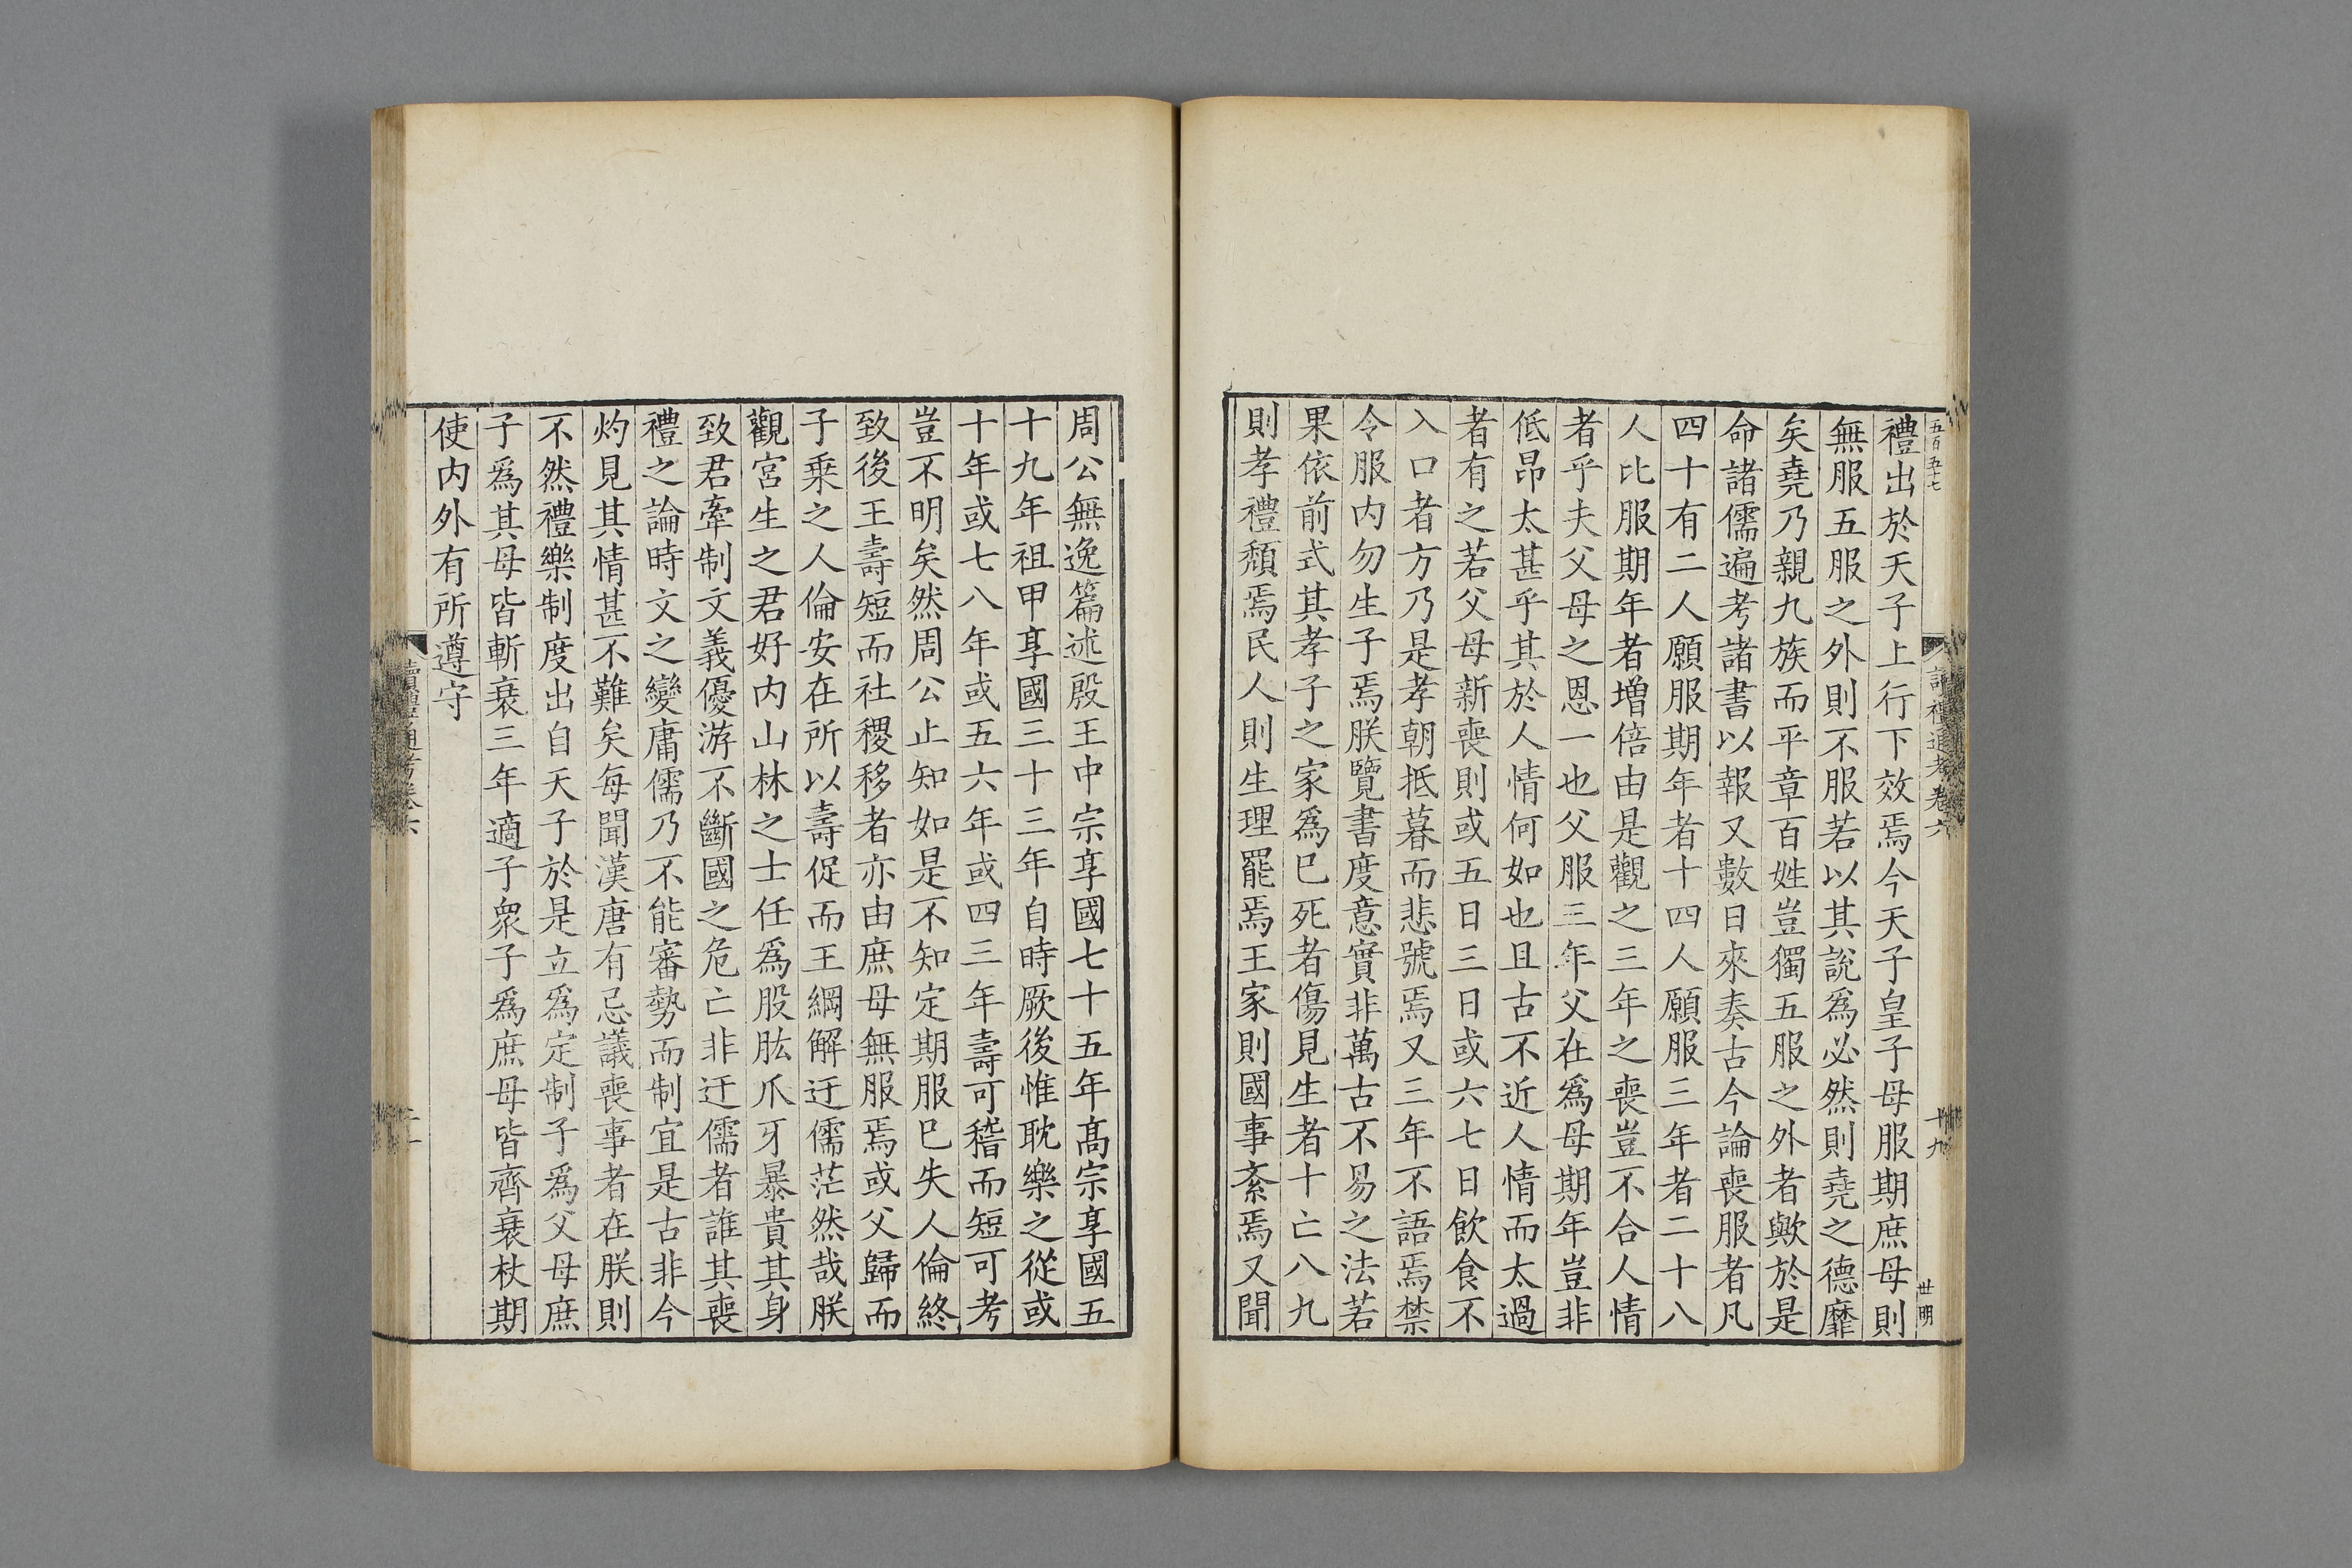 五百五十七
讀禮通考卷六
十九
世明
禮出於天子上行下效焉今天子皇子母服期庶母則
無服五服之外則不服若以其說爲必然則堯之德靡
矣堯乃親九族而平章百姓豈獨五服之外者歟於是
命諸儒遍考諸書以報又數日來奏古今論喪服者凡
四十有二人願服期年者十四人願服三年者二十八
人比服期年者增倍由是觀之三年之喪豈不合人情
者乎夫父母之恩一也父服三年父在爲母期年豈非
低昂太甚乎其於人情何如也且古不近人情而太過
者有之若父母新喪則或五日三日或六七日飲食不
入口者方乃是孝朝抵暮而悲號焉又三年不語焉禁
令服內勿生子焉朕覽書度意實非萬古不易之法若
果依前式其孝子之家爲已死者傷見生者十亡八九
則孝禮頹焉民人則生理罷焉王家則國事紊焉又聞
周公無逸篇述殷王中宗享國七十五年高宗享國五
十九年祖甲享國三十三年自時厥後惟耽樂之從或
十年或七八年或五六年或四三年壽可稽而短可考
豈不明矣然周公止知如是不知定期服已失人倫終
致後王壽短而社稷移者亦由庶母無服焉或父歸而
子乘之人倫安在所以壽促而王綱解迂儒茫然哉朕
觀宮生之君好內山林之士任爲股肱爪牙暴貴其身
致君牽制文義優游不斷國之危亡非迂儒者誰其喪
禮之論時文之變庸儒乃不能審勢而制宜是古非今
灼見其情甚不難矣每聞漢唐有忌議喪事者在朕則
不然禮樂制度出自天子於是立爲定制子爲父母庶
子爲其母皆斬衰三年適子衆子爲庶母皆齊衰杖期
使內外有所遵守
讀禮通考卷六